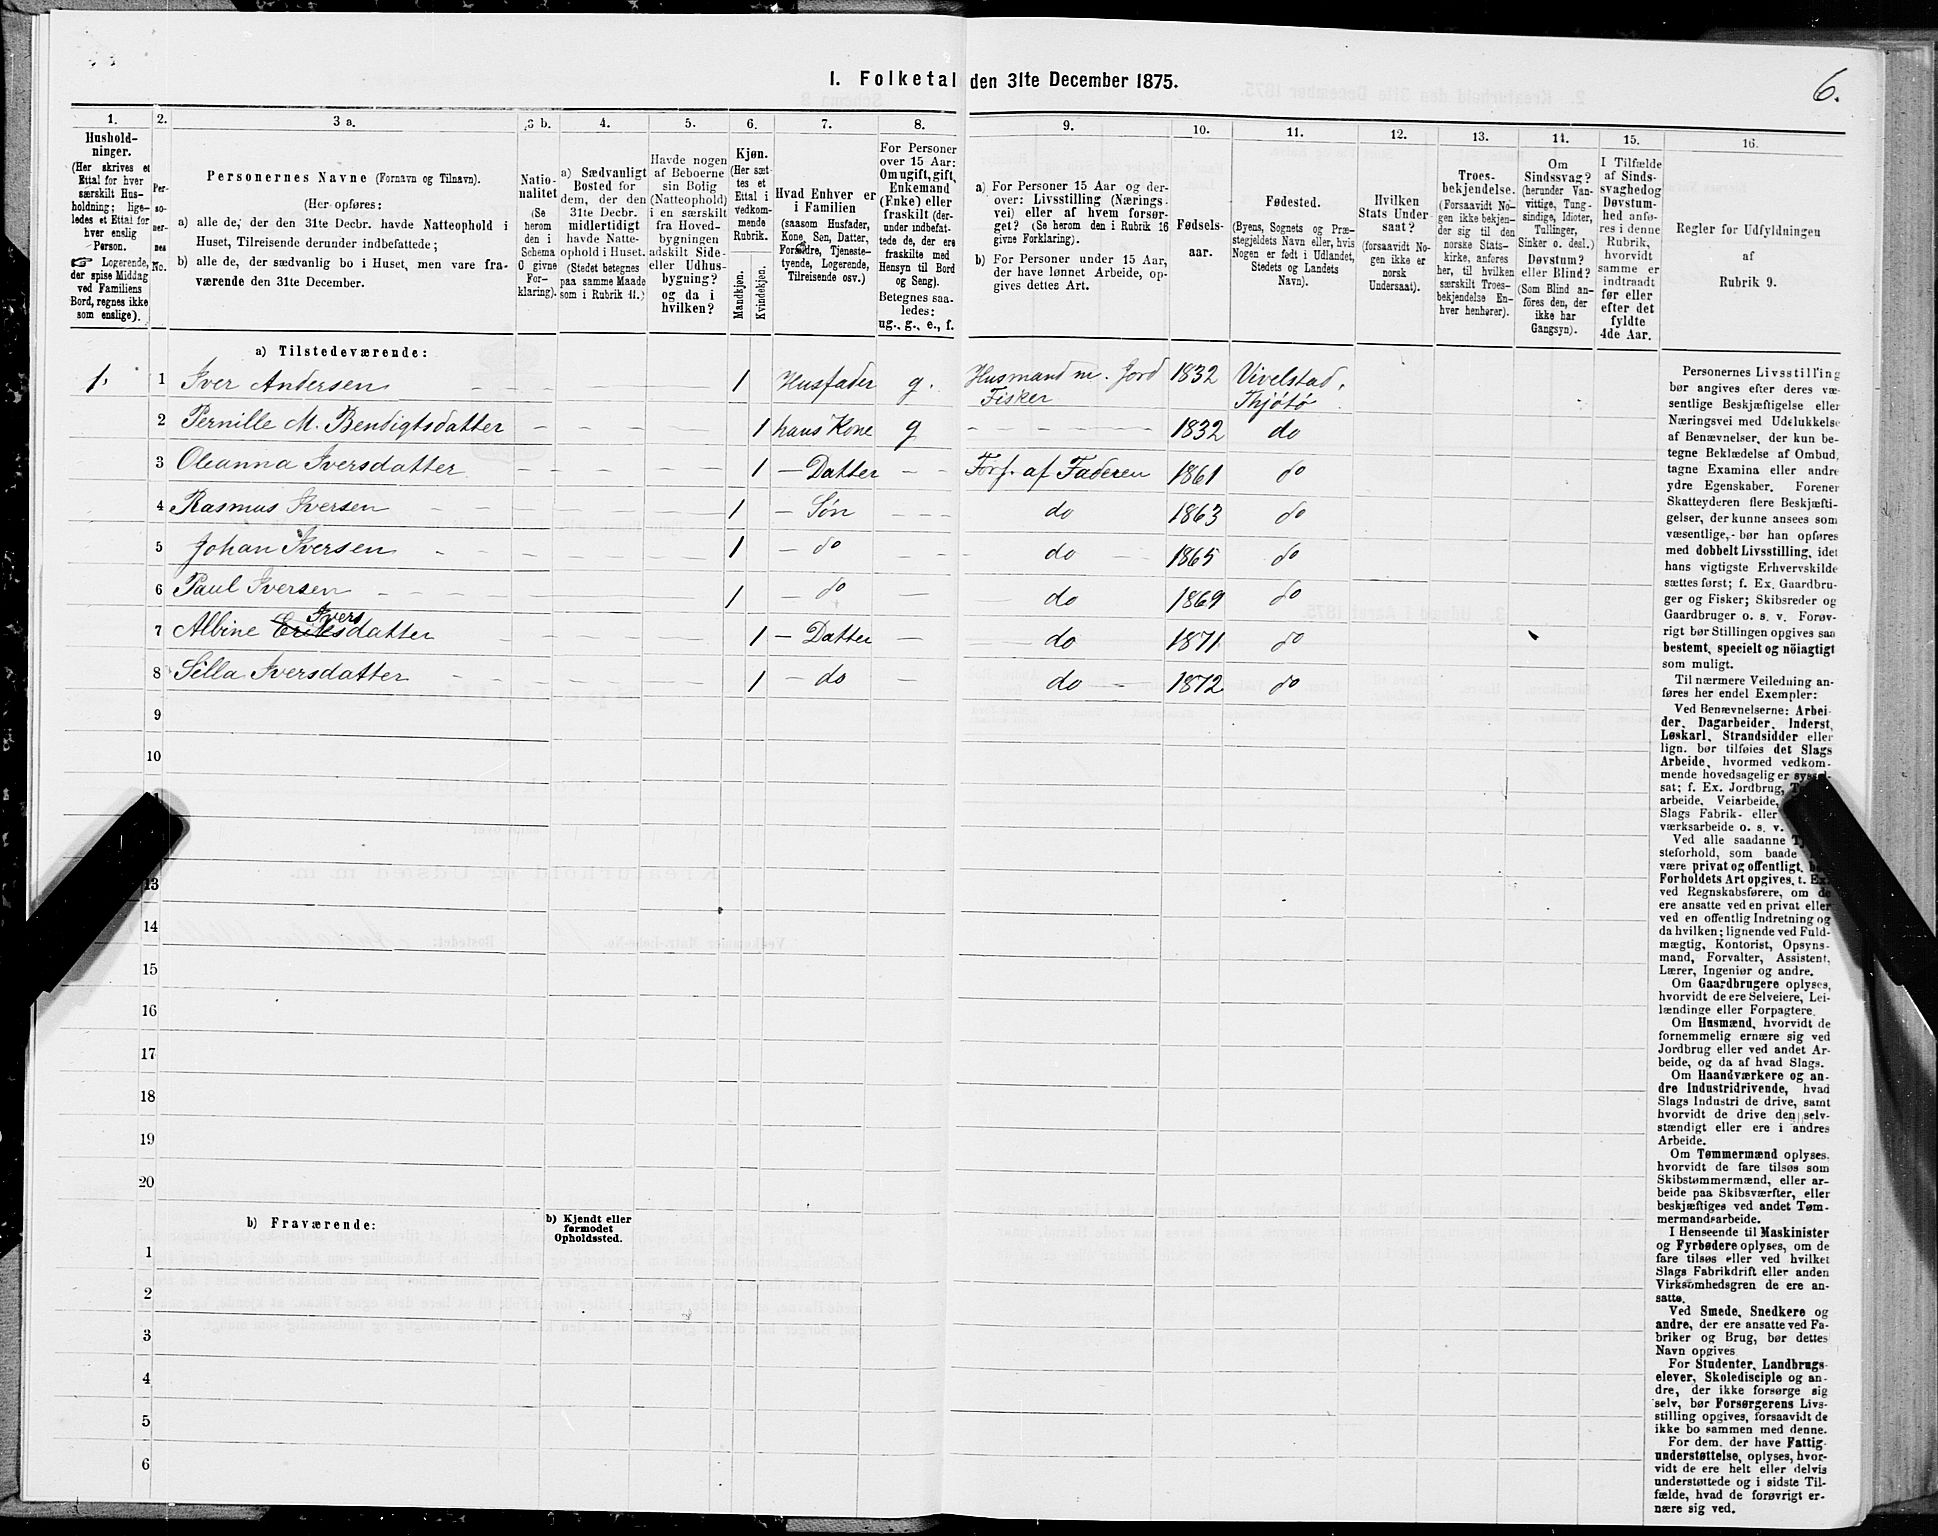 1. Folketal den 31te December 1875.
6.
1.
Hushold-
ninger.
(Her skrives et
Ettal for hver
særskilt Hus-
holdning; lige-
ledes et Ettal for
hver enslig
Person.
☞ Logerende,
der spise Middag
ved Familiens
Bord, regnes ikke
som enslige).
2.
Per-
so-
ner-
nes
No.
3 a.
Personernes Navne (Fornavn og Tilnavn).
(Her opføres:
a) alle de, der den 31te Decbr. havde Natteophold i
Huset, Tilreisende derunder indbefattede;
b) alle de, der sædvanlig bo i Huset, men vare fra-
værende den 31te December.
3 b.
Natio-
nalitet
(Se
herom
den i
Schema
0 givne
For-
klaring).
4.
a) Sædvanligt
Bosted for
dem, der den
31te Decbr.
midlertidigt
havde Natte-
ophold i Huset.
(Stedet betegnes
paa samme Maade
som i Rubrik 11.)
5.
Havde nogen
af Beboerne
sin Bolig
(Natteophold)
i en særskilt
fra Hoved-
bygningen
adskilt Side-
eller Udhus-
bygning?
og da i
hvilken?
6.
Kjøn.
(Her sæt-
tes et
Ettal i
vedkom-
mende
Rubrik.
Mandkjøn.
Kvindekjøn.
7.
Hvad Enhver er
i Familien
(saasom Husfader,
Kone, Søn, Datter,
Forældre, Tjeneste-
tyende, Logerende,
Tilreisende osv.)
8.
For Personer
over 15 Aar:
Om ugift, gift,
Enkemand
(Enke) eller
fraskilt (der-
under indbefat-
tede de, der ere
fraskilte med
Hensyn til Bord
og Seng).
Betegnes saa-
ledes:
ug., g., e., f.
9.
a) For Personer 15 Aar og der-
over: Livsstilling (Nærings-
vei) eller af hvem forsør-
get? (Se herom den i Rubrik 16
givne Forklaring).
b) For Personer under 15 Aar,
der have lønnet Arbeide, op-
gives dettes Art.
10.
Fødsels-
aar.
11.
Fødested.
(Byens, Sognets og Præ-
stegjeldets Navn eller, hvis
Nogen er født i Udlandet,
Stedets og Landets
Navn).
12.
Hvilken
Stats Under-
saat?
(forsaavidt No-
gen ikke er
norsk
Undersaat).
13.
Troes-
bekjendelse.
(Forsaavidt No-
gen ikke bekjen-
der sig til den
norske Stats-
kirke, anføres
her, til hvilken
særskilt Troes-
bekjendelse En-
hver henhører).
14.
Om
Sindssvag?
(herunder Van-
vittige, Tung-
sindige, Idioter,
Tullinger,
Sinker o. desl.)
Døvstum?
eller Blind?
(Som Blind an-
føres den, der
ikke har
Gangsyn).
15.
I Tilfælde
af Sinds-
svaghedog
Døvstum-
hed anfø-
res i denne
Rubrik,
hvorvidt
samme er
indtraadt
før eller
efter det
fyldte
4de Aar.
16.
Regler for Udfyldningen
af
Rubrik 9.
a) Tilstedeværende:
1. 1 Iver Andersen - - - - 1 Husfader g. Husmand m. Jord 1832 Vivelstad,
Fisker Thjøtø
2 Pernille M. Bendigtsdatter - - - - 1 hans Kone g - - - - 1832 do
3 Oleanna Iversdatter - - - - 1 - Datter - - Forf. af Faderen 1861 do
4 Rasmus Iversen - - - - 1 - Søn - - - do 1863 do
5 Johan Iversen - - - - 1 - do - - - do - 1865 do
6 Paul Iversen - - - - 1 - do - - do 1869 do
Ivers
7 Albine Eriksdatter - - - 1 - Datter - - - do 1871 do
8 Silla Iversdatter - - - - 1 - do - - do - 1872 do
9
10
13
14
15
16
17
18
19
20
b) Fraværende:
b) Kjendt eller
formodet
Opholdssted.
1
2
3
4
5
6
Personernes Livsstilling
bør angives efter deres væ-
sentlige Beskjæftigelse eller
Næringsvei med Udelukkelse
af Benævnelser, der kun be-
tegne Beklædelse af Ombud,
tagne Examina eller andre
ydre Egenskaber. Forener
Skatteyderen flere Beskjæfti-
gelser, der kunne ansees som
væsentlige, bør han opføres
med dobbelt Livsstilling, idet
hans vigtigste Erhvervskilde
sættes først; f. Ex. Gaardbru-
ger og Fisker; Skibsreder og
Gaardbruger o. s. v. Forøv-
rigt bør Stillingen opgives saa
bestemt, specielt og nöiagtigt
som muligt.
Til nærmere Veiledning an-
føres her endel Exempler:
Ved Benævnelserne: Arbei-
der, Dagarbeider, Inderst,
Løskarl, Strandsidder eller
lign. bør tilføies det Slags
Arbeide, hvormed vedkom-
mende hovedsagelig er syssel-
sat; f. Ex. Jordbrug,
arbeide, Veiarbeide,
Slags Fabrik- eller
værksarbeide o. s. v.
Ved alle saadanne
steforhold, som baade
være privat og offentligt,
Forholdets Art opgives, t. Ex.
ved Regnskabsførere, om de
ere ansatte ved en privat eller
ved en offentlig Indretning og
da hvilken; lignende ved Fuld-
mægtig, Kontorist, Opsyns-
mand, Forvalter, Assistent,
Lærer, Ingeniør og andre.
Om Gaardbrugere oplyses,
hvorvidt de ere Selveiere, Lei-
lændinge eller Forpagtere.
Om Husmænd, hvorvidt de
fornemmelig ernære sig ved
Jordbrug eller ved andet Ar-
beide, og da af hvad Slags.
Om Haandværkere og an-
dre Industridrivende, hvad
Slags Industri de drive, samt
hvorvidt de drive den selv-
stændigt eller ere i andres
Arbeide.
Om Tømmermænd oplyses,
hvorvidt de fare tilsøs som
Skibstømmermænd, eller ar-
beide paa Skibsværfter, eller
beskjæftiges ved andet Tøm-
mermandsarbeide.
I Henseende til Maskinister
og Fyrbødere oplyses, om de
fare tilsøs eller ved hvilket
Slags Fabrikdrift eller anden
Virksomhedsgren de ere an-
satte.
Ved Smede, Snedkere og
andre, der ere ansatte ved Fa-
briker og Brug, bør dettes
Navn opgives.
For Studenter, Landbrugs-
elever, Skoledisciple og an-
dre, der ikke forsørge sig
selv, bør Forsørgerens Livs-
stilling opgives, forsaavidt de
ikke bo sammen med denne.
For dem, der have Fattig-
understøttelse, oplyses, hvor-
vidt de ere helt eller delvis
understøttede og i sidste Til-
fælde, hvad de forøvrigt er-
nære sig ved.